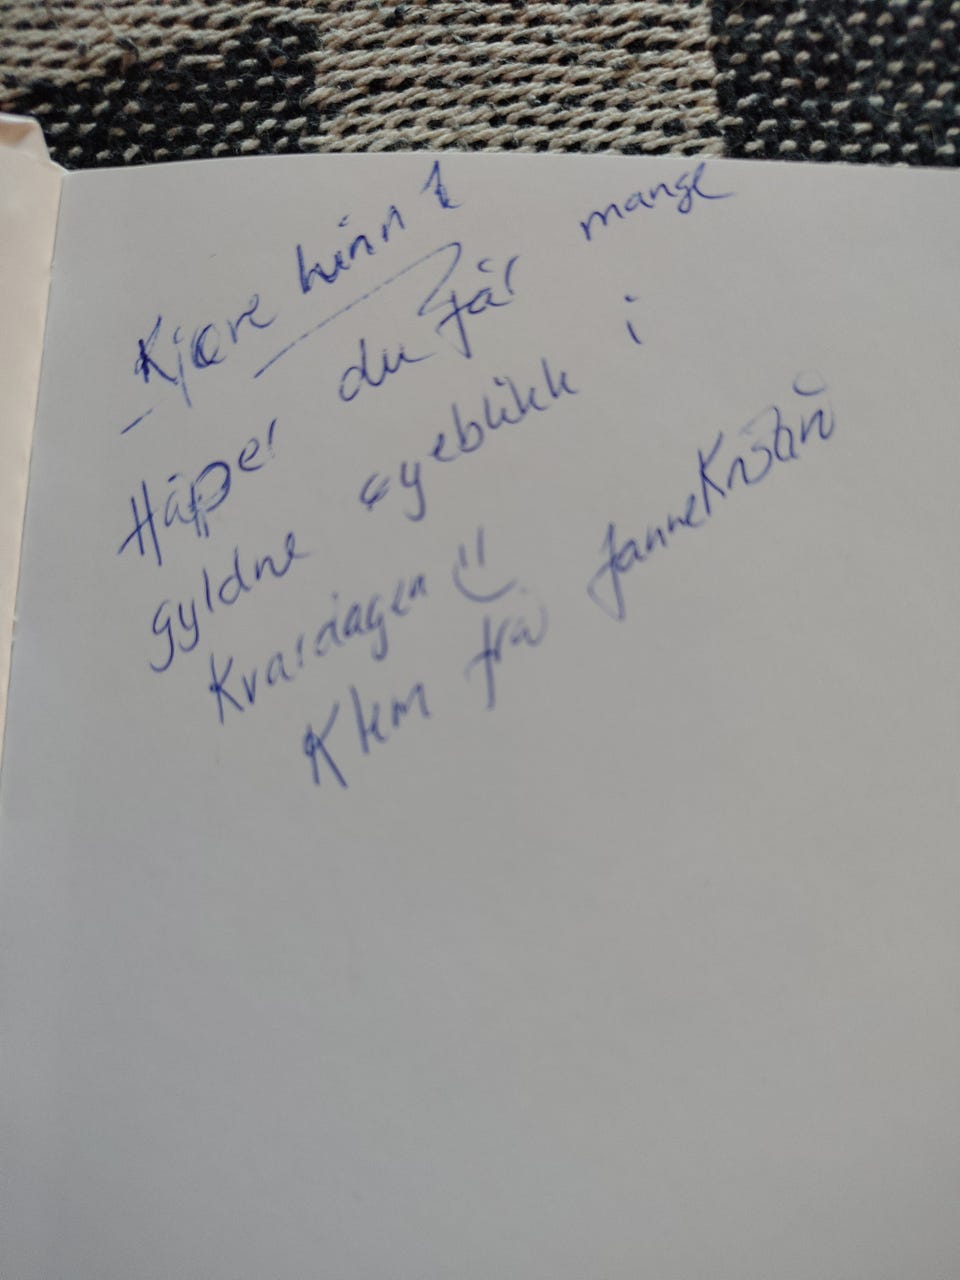 Kjære
Håper du får mange
gyldne øyeblikk i
Kvardagen
Klem frå Janne Kristin